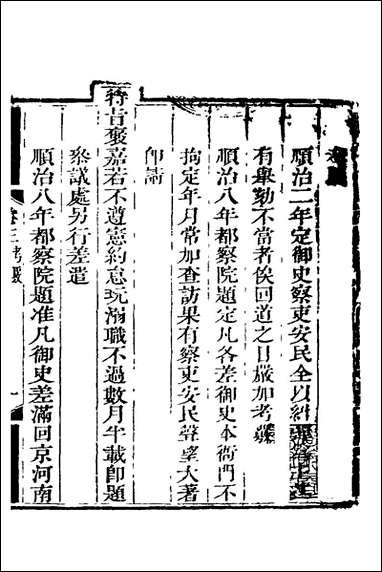 考
順治二年定御史察吏安民全以糾
有舉劾不當者俟回道之日嚴加考覈
順治八年都察院題定凡各差御史本衙門不
拘定年月常加查訪果有察吏安民聲望大著
即請
特旨褒嘉若不遵憲約怠玩溺職不過數月半載即題
參議處另行差遣
順治八年都察院題准凡御史差滿回京河南
卷三考覈 一